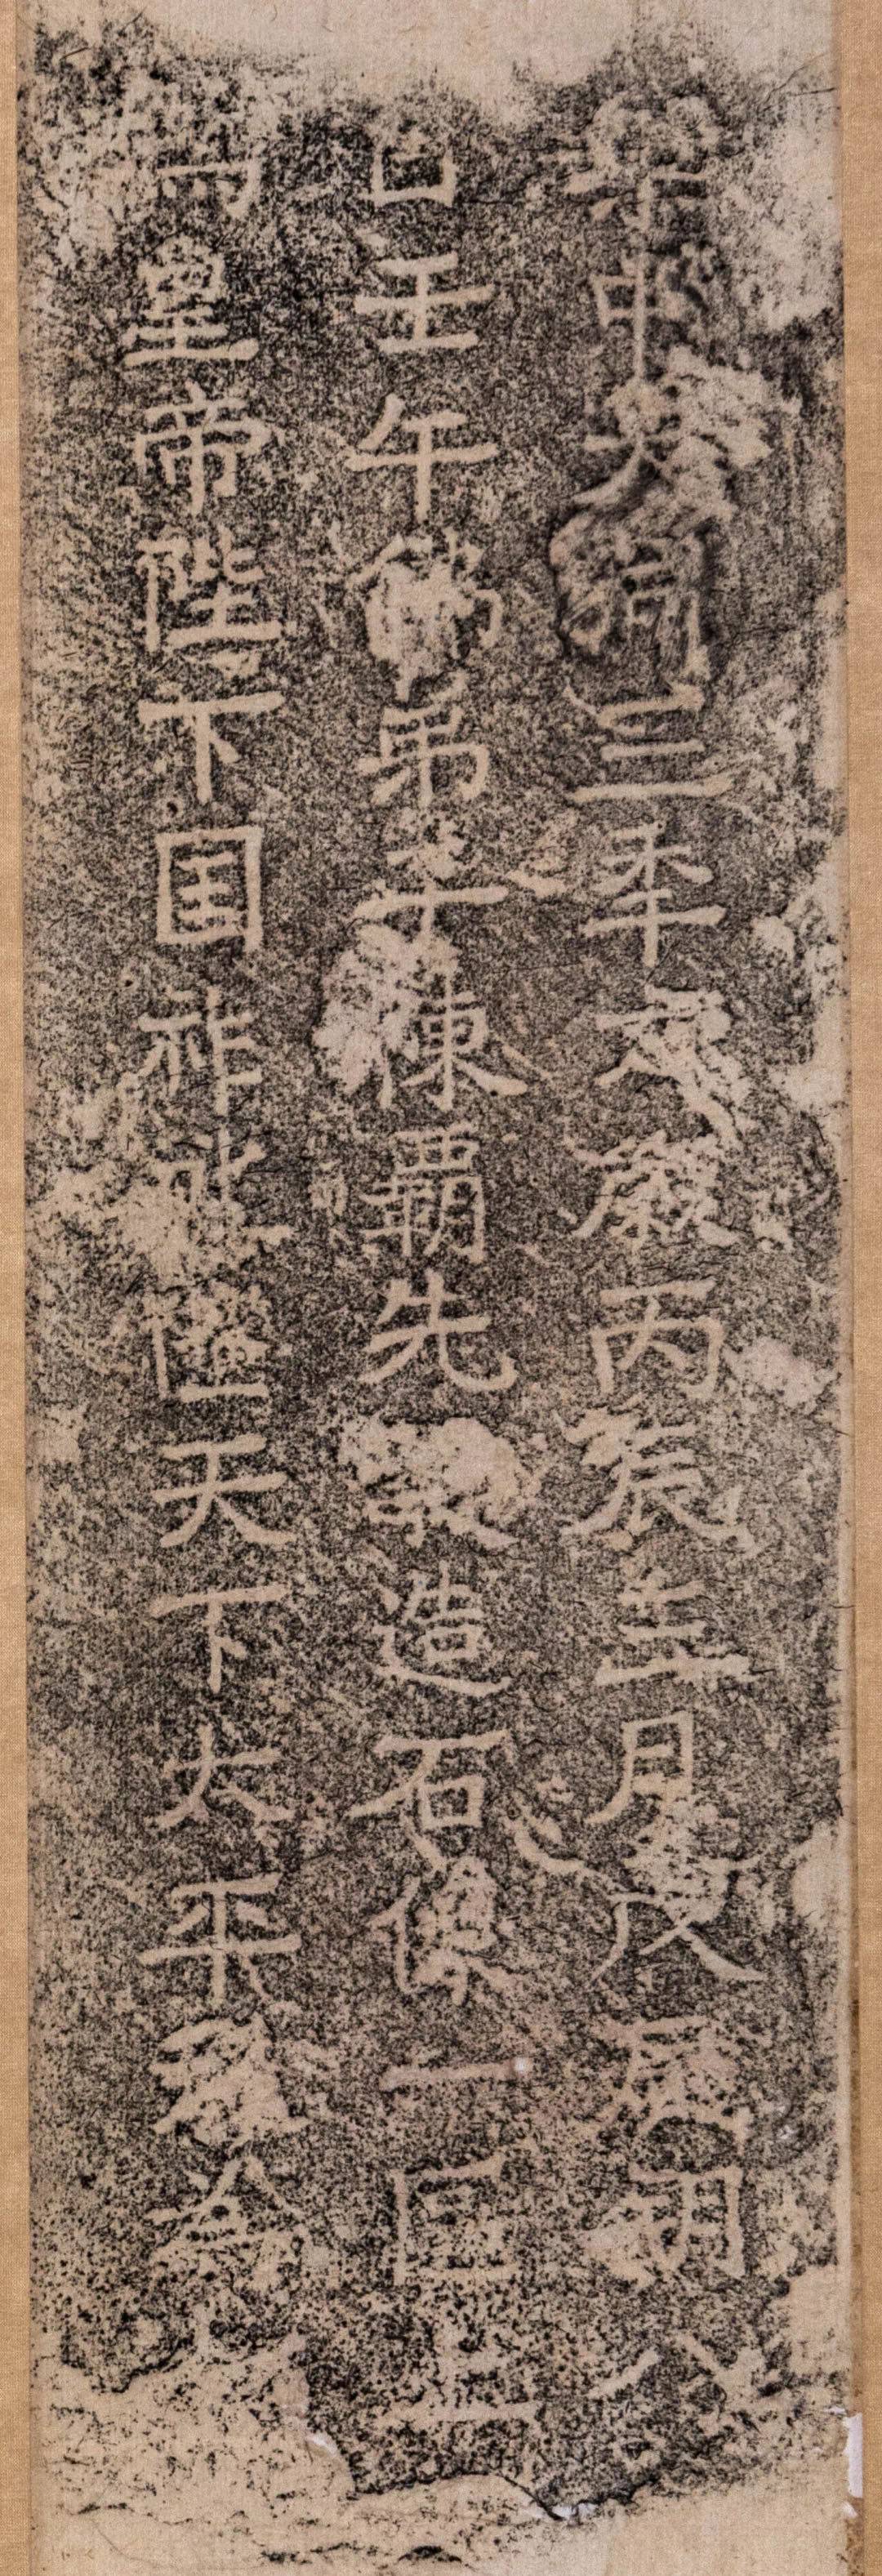 梁中大同三年太歲丙辰月朔八
日壬午佛弟子陳霸先敬造石像一区上
為皇帝陛下囯祚永隆天下太平